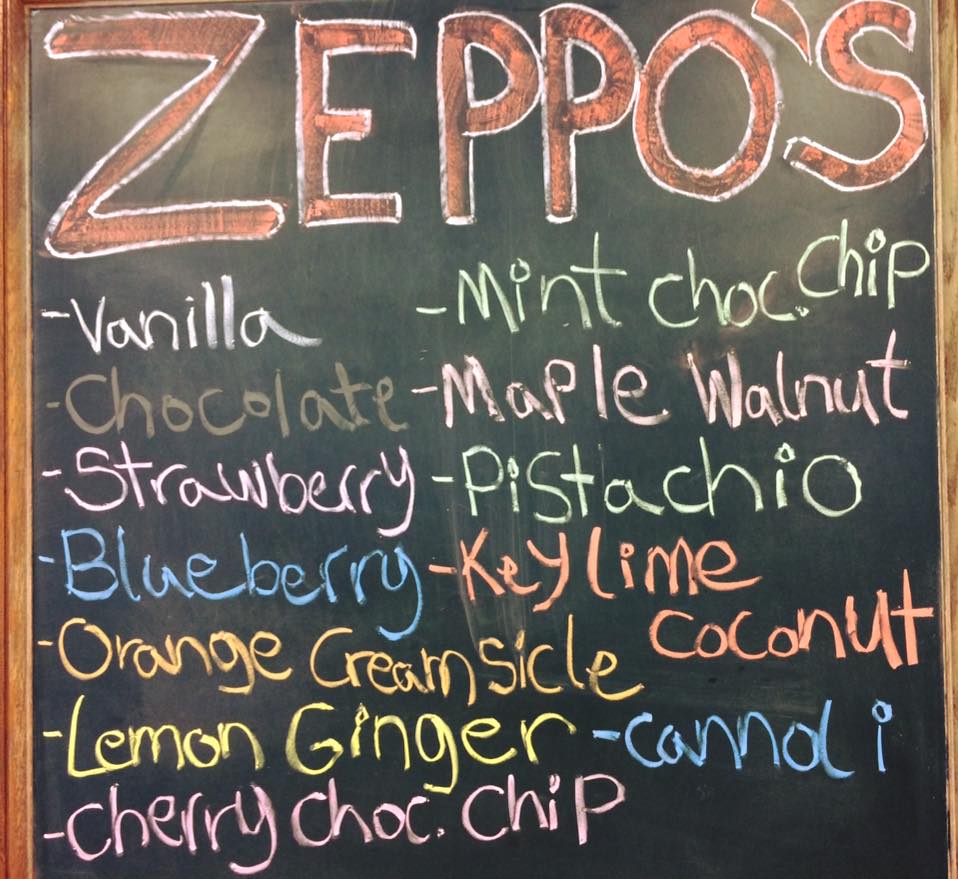 ZEPPO'S
-Vanilla
-Chocolate
-Strawberry
-Blueberry
-Orange Creamsicle
-Lemon Ginger
-Cherry choc. Chip
-Mint choc. Chip
-Maple Walnut
-Pistachio
-Key lime
coconut
-cannoli